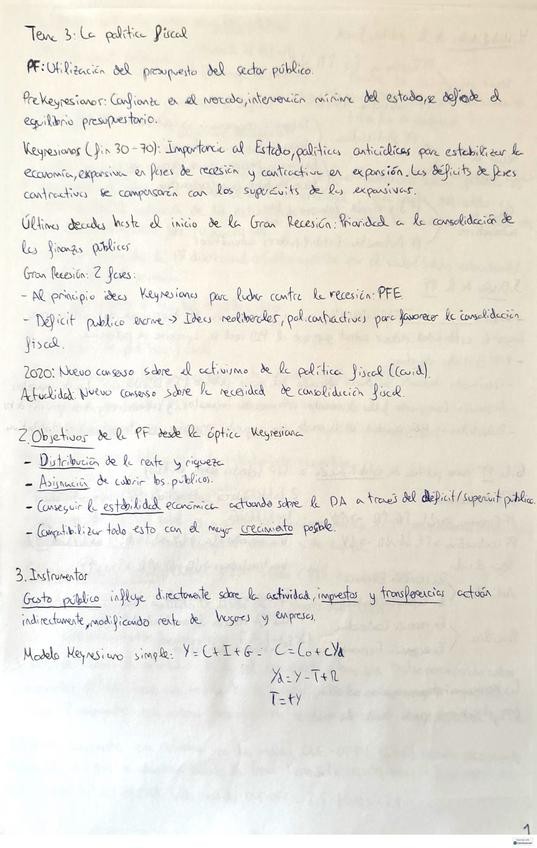 Tema 3: La política fiscal
PF: Utilización del presupuesto del sector público.
PreKeynesianos: Confianza en el mercado, intervención mínima del estado, se defiende el
equilibrio presupuestario.
Keynesianos (fin 30-70): Importancia al Estado, políticas anticíclicas para estabilizar la
economía, expansiva en fases de recesión y contractiva en expansión. Los déficits de fases
contractivas se compensarán con los superávits de las expansivas.
Últimas décadas hasta el inicio de la Gran Recesión: Prioridad a la consolidación de
las finanzas públicas
Gran Recesión: 2 fases:
- Al principio ideas Keynesianas para luchar contra la recesión: PFE
- Déficit publico enorme → Ideas neoliberales, pol. contractivas para favorecer la consolidación
fiscal.
2020: Nuevo consenso sobre el activismo de la política fiscal (Covid).
Actualidad: Nuevo consenso sobre la necesidad de consolidación fiscal.
2. Objetivos de la PF desde la óptica Keynesiana
- Distribución de la renta y riqueza
- Asignación de cubrir bs. publicos.
- Conseguir la estabilidad económica actuando sobre la DA a través del déficit/superávit público.
- Compatibilizar todo esto con el mayor crecimiento posible.
3. Instrumentos
Gasto público influye directamente sobre la actividad, impuestos y transferencias actúan
indirectamente, modificando renta de hogares y empresas.
Modelo Keynesiano simple: Y = C + I + G - C = C0 + cYd
Yd = Y - T + R
T = tY
1